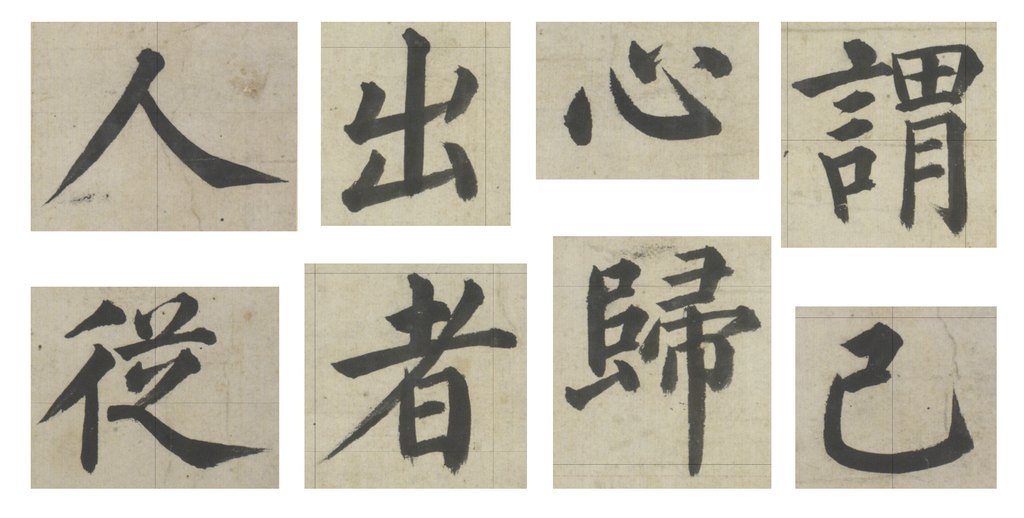 人 出 心 謂
従 者 歸 己